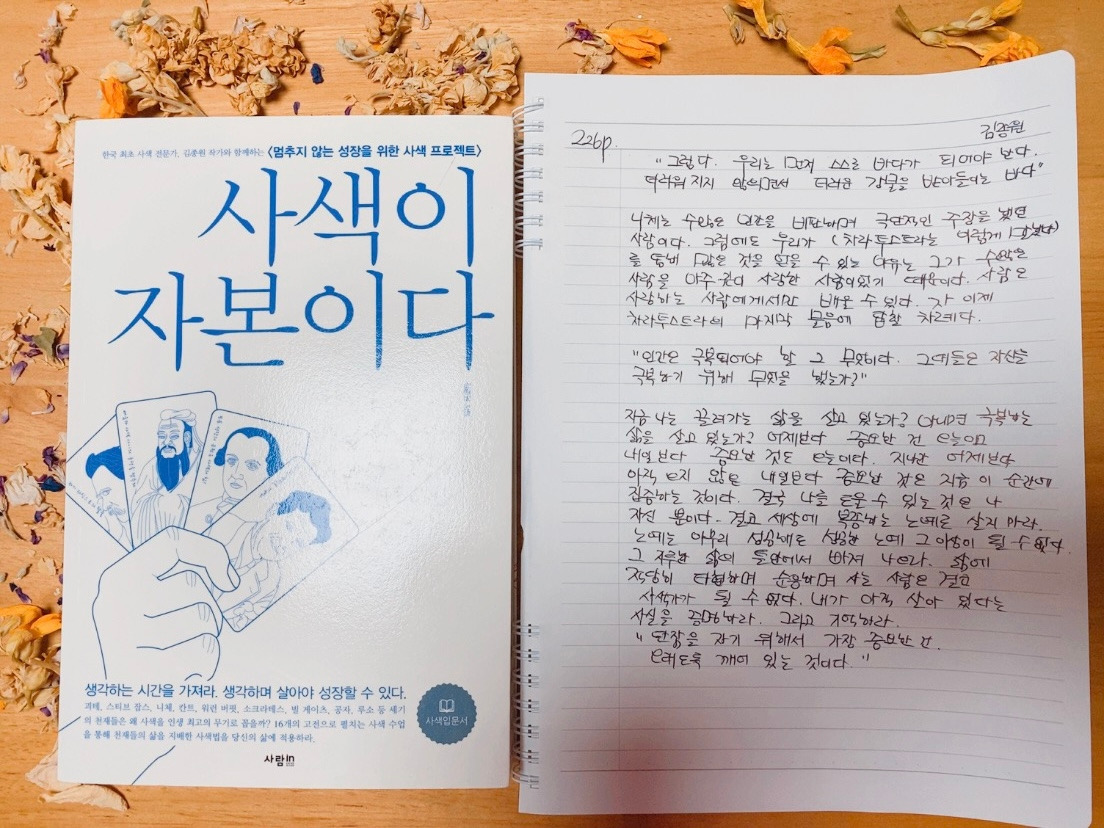 한국 최초 사색 전문가, 김종원 작가와 함께하는 <멈추지 않는 성장을 위한 사색 프로젝트>
사색이
자본이다
김종원
생각하는 시간을 가져라. 생각하며 살아야 성장할 수 있다.
괴테, 스티브 잡스, 니체, 칸트, 워런 버핏, 소크라테스, 빌 게이츠, 공자, 루소 등 세기
의 천재들은 왜 사색을 인생 최고의 무기로 꼽을까? 16개의 고전으로 펼치는 사색 수업
을 통해 천재들의 삶을 지배한 사색법을 당신의 삶에 적용하라.
사색입문서
사람in
226p.
김종원
"그렇다. 우리는 먼저 스스로 바다가 되어야 한다.
더러워지지 않으면서 더러운 강물을 받아들이는 바다"
니체는 수많은 인간을 비판하며 극단적인 주장을 했던
사람이다. 그럼에도 우리가 (차라투스트라는 이렇게 말했다)
를 통해 많은 것을 얻을 수 있는 이유는 그가 수많은
사람을 아주 깊이 사랑한 사람이었기 때문이다. 사람은
사랑하는 사람에게서만 배울 수 있다. 자 이제
차라투스트라의 마지막 물음에 답할 차례다.
"인간은 극복되어야 할 그 무엇이다. 그대들은 자신을
극복하기 위해 무엇을 했는가?"
지금 나는 끌려가는 삶을 살고 있는가? 아니면 극복하는
삶을 살고 있는가? 어제보다 중요한 건 오늘이고
내일보다 중요한 것도 오늘이다. 지나간 어제보다
아직 오지 않은 내일보다 중요한 것은 지금 이 순간에
집중하는 것이다. 결국 나를 도울 수 있는 것은 나
자신 뿐이다. 결코 세상에 복종하는 노예로 살지 마라.
노예는 아무리 성공해도 성공한 노예 그 이상이 될 수 없다.
그 지루한 삶의 틀안에서 빠져 나오라. 삶에
적당히 타협하며 순응하며 사는 사람은 결코
사색가가 될 수 없다. 내가 아직 살아 있다는
사실을 증명하라. 그리고 기억하라.
"단잠을 자기 위해서 가장 중요한 건
오래도록 깨어 있는 것이다."